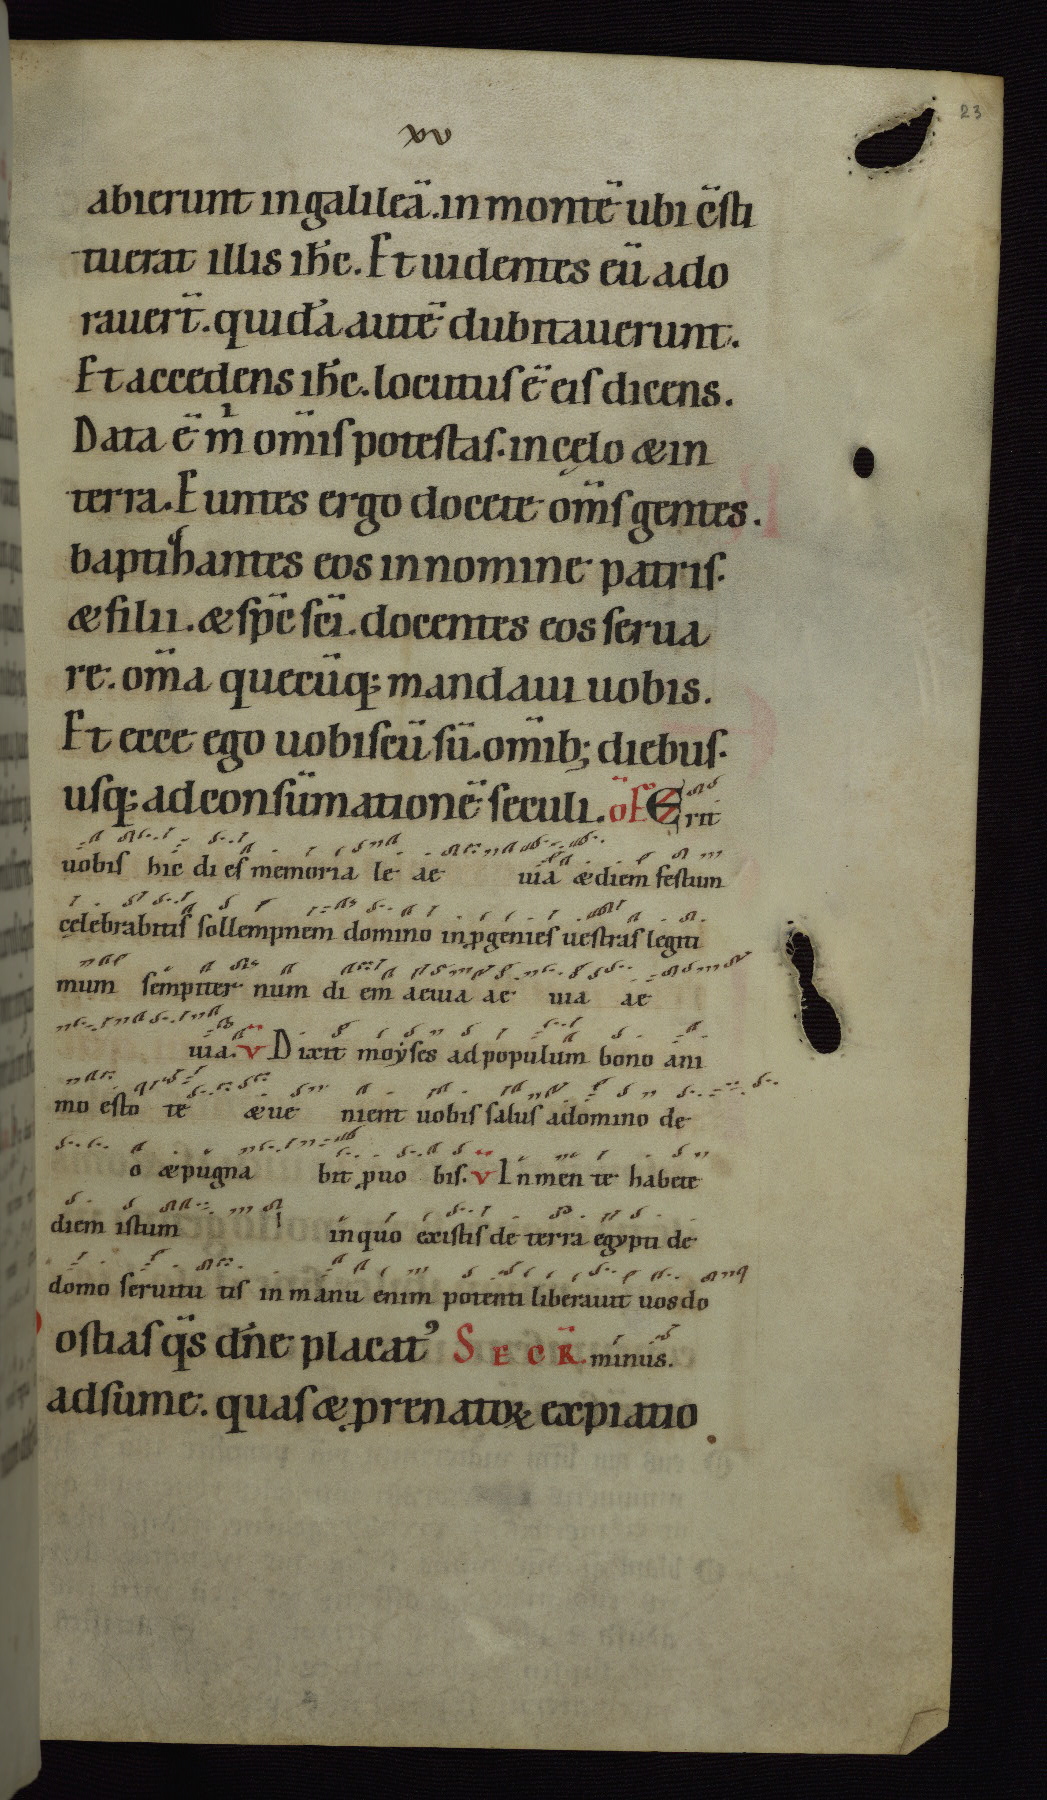 23
xv
abierunt in galileā. in montē ubi c̄sti
tuerat illis ih̄c. Et uidentes eū ado
rauer̄t. quidā autē dubitauerunt.
Et accedens ih̄c. locutuſ ē eiſ dicens.
Data ē m̄ om̄iſ poteſtaſ. in cęlo & in
terra. Euntes ergo docete om̄ſ gentes.
baptihantes eos in nomine patriſ.
& filii. & ſp̄c ſc̄i. docentes eos ſerua
re. om̄a quecūq; mandaui uobis.
Et ecce ego uobiſcū ſū. om̄ib; diebuſ.
uſq; ad conſūmationē ſeculi. of̄ Erit
uobiſ hic di eſ memoria le ae uia & diem feſtum
cęlebrabitiſ ſollempnem domino in ꝓgenieſ ueſtraſ legiti
mum ſempiter num di em aeuia ae uia ae
uia. v Dixit moẏſes ad populum bono ani
mo eſto te & ue nient uobiſ ſaluſ a domino de
o & pugna bit ꝓ uo biſ. v In men te habete
diem iſtum in quo exiſtiſ de terra egypti de
domo ſeruitu tiſ in manu enim potenti liberauit uos do
oſtiaſ q̄s dn̄e placat᾽ SECR̄. minus.
adſume. quaſ & ꝓ renatoꝝ expiatio